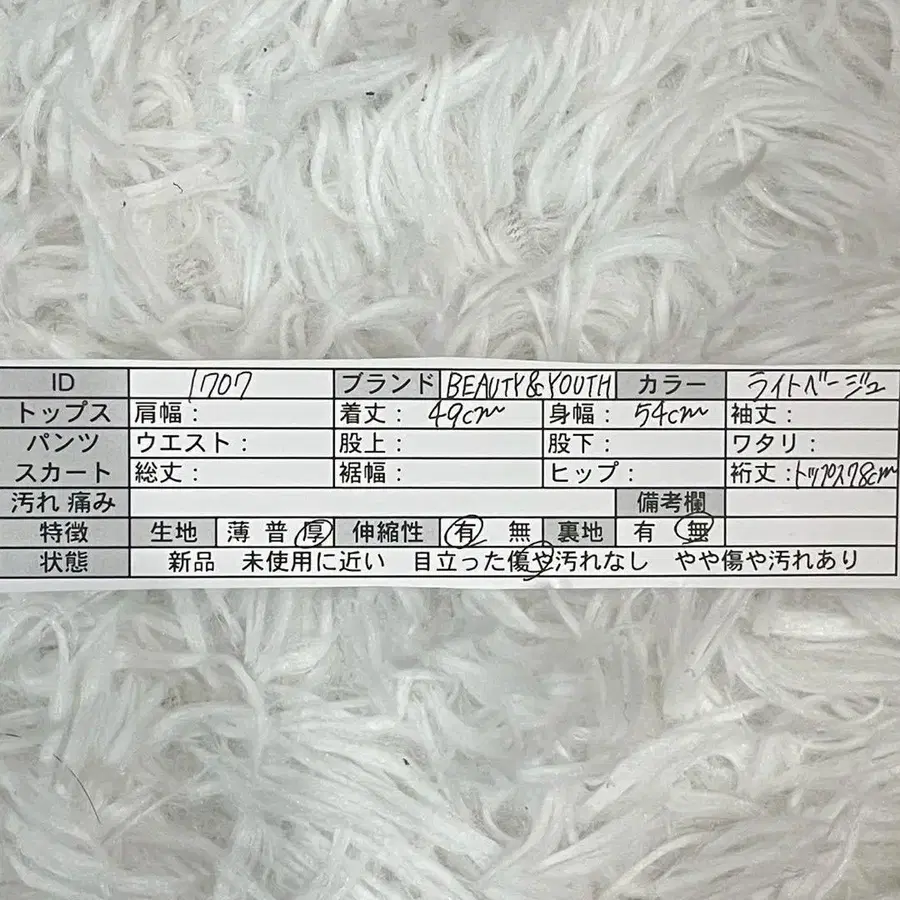 ID 1707 ブランド BEAUTY&YOUTH カラー ライトベージュ
トップス 肩幅： 着丈： 49cm 身幅： 54cm 袖丈：
パンツ ウエスト： 股上： 股下： ワタリ：
スカート 総丈： 裾幅： ヒップ： 裄丈：トップス78cm
汚れ 痛み 備考欄
特徴 生地 薄 普 厚 伸縮性 有 無 裏地 有 無
状態 新品 未使用に近い 目立った傷や汚れなし やや傷や汚れあり